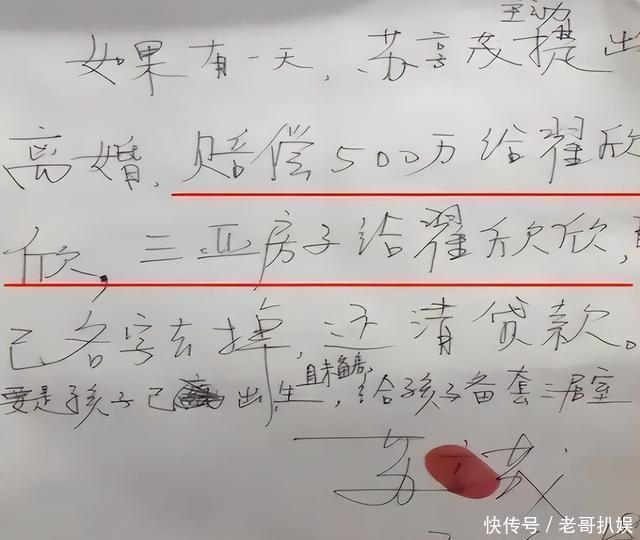 主动
如果有一天,苏享茂提出
离婚,赔偿500万给翟欣
欣,三亚房子给翟欣欣,
己名字去掉,还清贷款。
且未备房,
要是孩子已出生,给孩子备套二居室
苏享茂
快传号/老哥扒娱